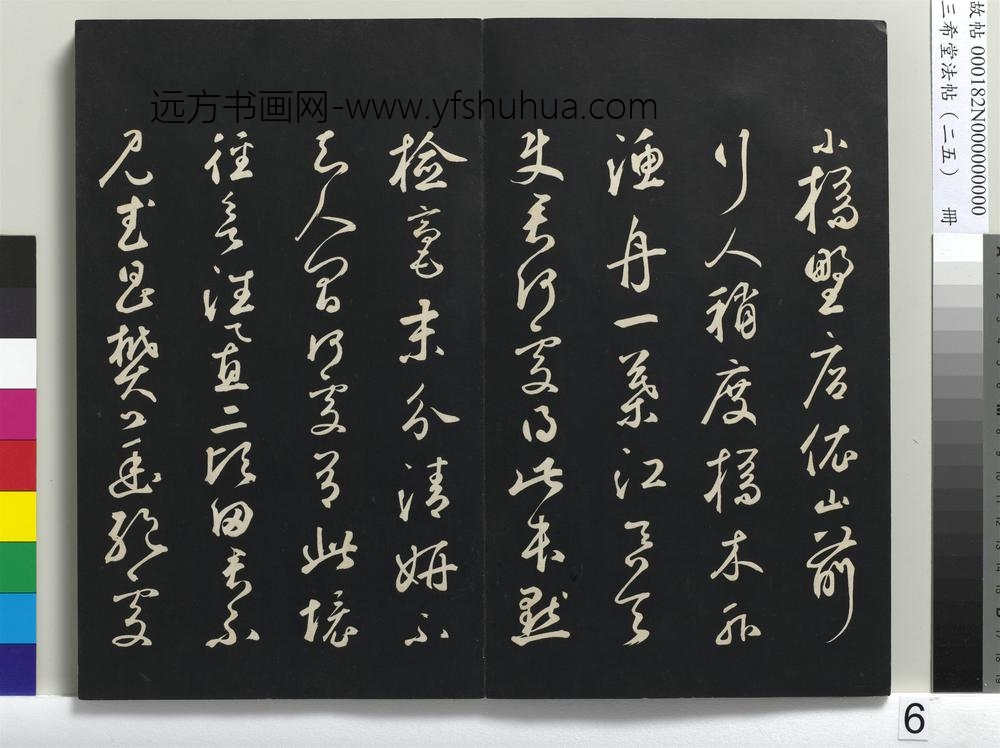 远方书画网-www.yfshuhua.com
故帖 000182N000000000
三希堂法帖（二五） 冊
小橋野店依山前
行人稍度橋木外
漁舟一葉江吞天
使君何處得此本點
檢毫末分清妍不
知人間何處有此境
徑欲往置二頃田君不
見武昌樊口幽絕處
6